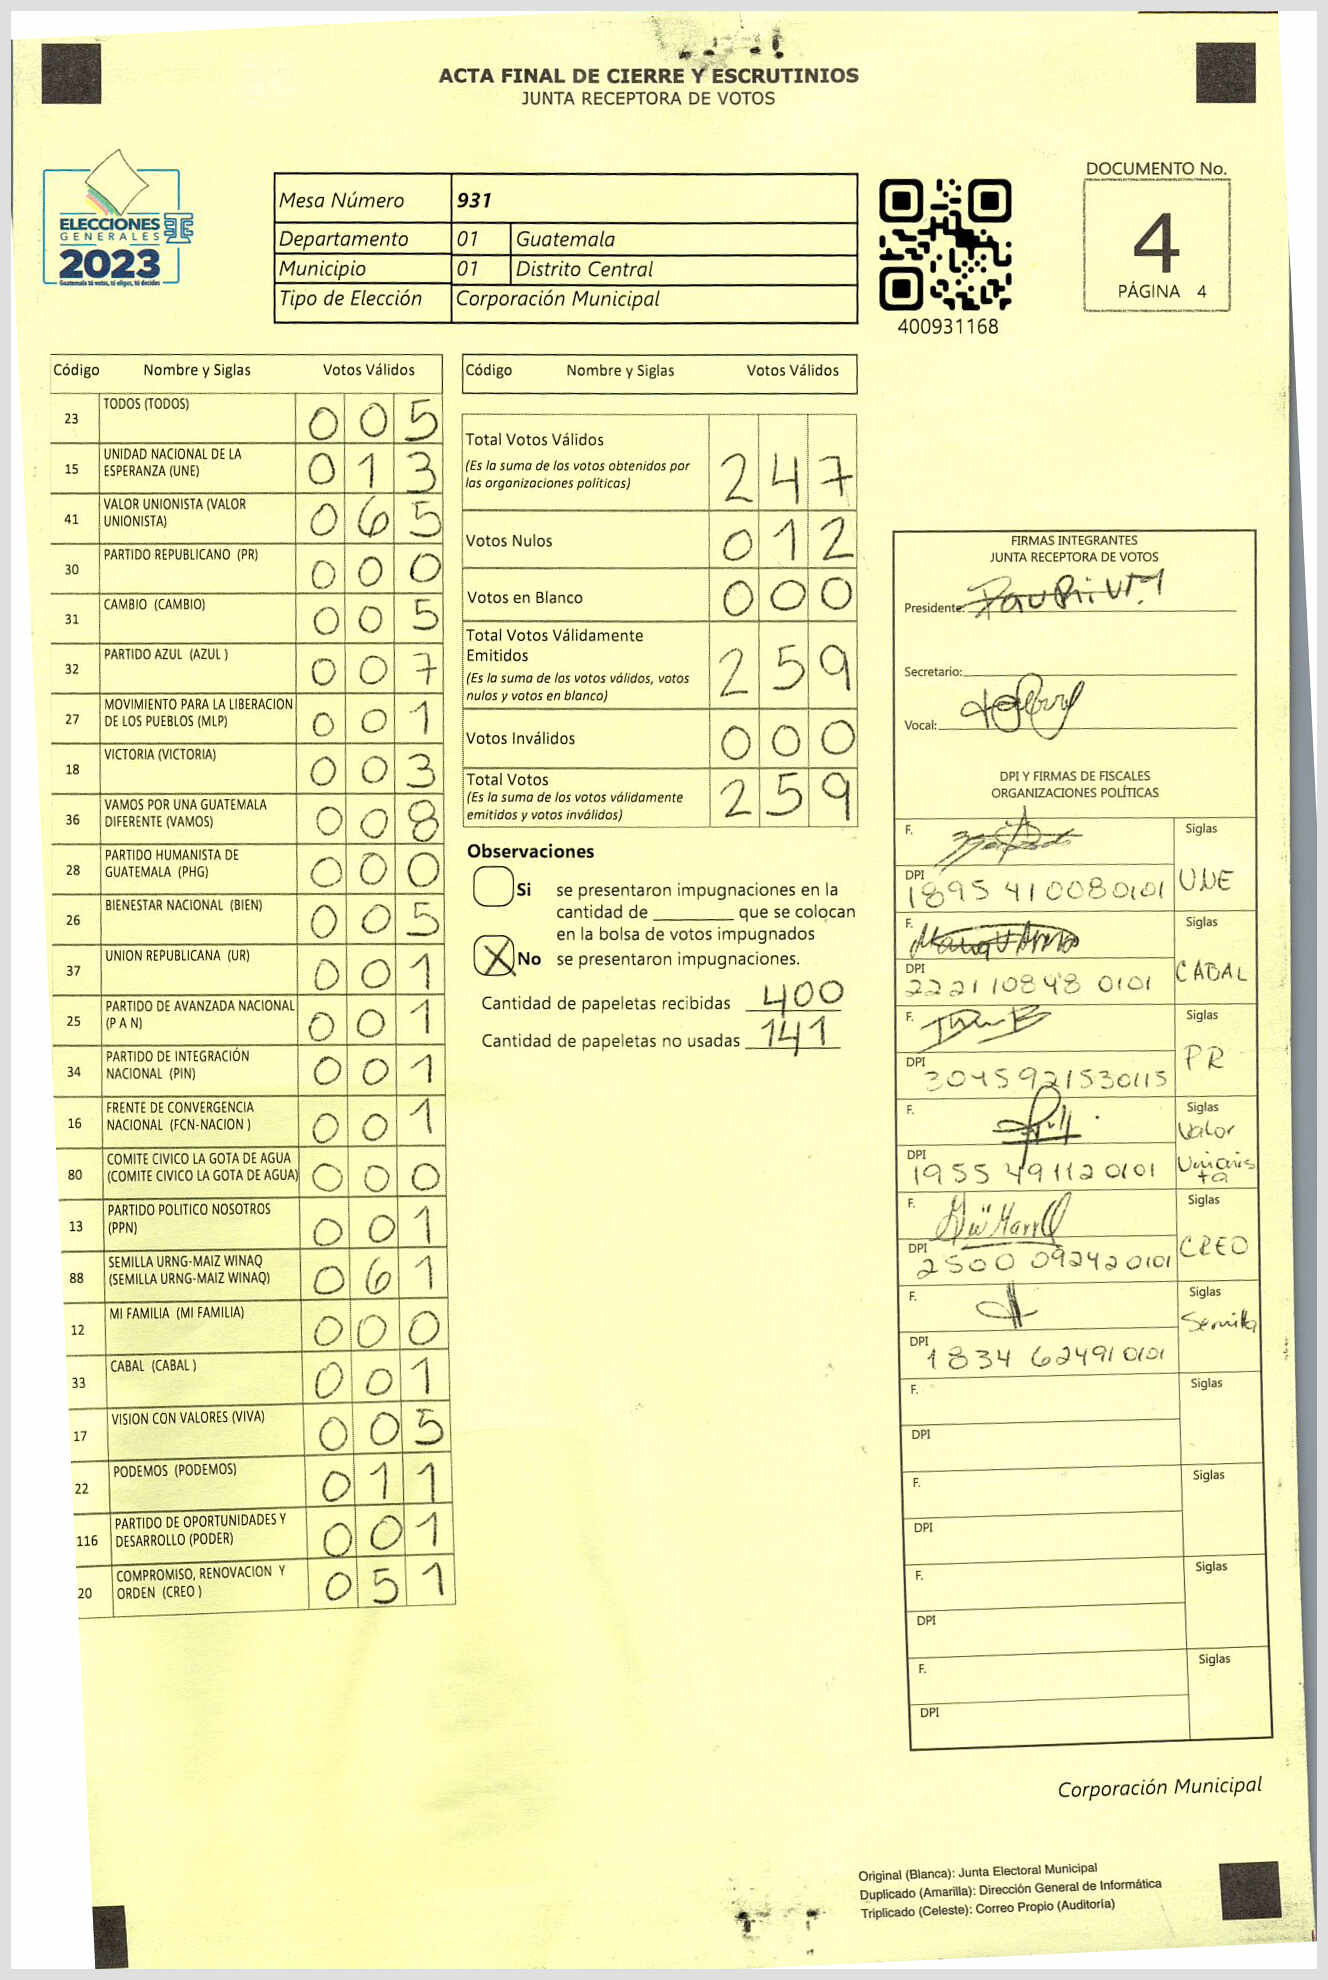 ACTA FINAL DE CIERRE Y ESCRUTINIOS
JUNTA RECEPTORA DE VOTOS
ELECCIONES
GENERALES
2023
Guatemala tú votas, tú eliges, tú decides
Mesa Número 931
Departamento 01 Guatemala
Municipio 01 Distrito Central
Tipo de Elección Corporación Municipal
400931168
DOCUMENTO No.
4
PÁGINA 4
Código Nombre y Siglas Votos Válidos
23 TODOS (TODOS) 0 0 5
15 UNIDAD NACIONAL DE LA ESPERANZA (UNE) 0 1 3
41 VALOR UNIONISTA (VALOR UNIONISTA) 0 6 5
30 PARTIDO REPUBLICANO (PR) 0 0 0
31 CAMBIO (CAMBIO) 0 0 5
32 PARTIDO AZUL (AZUL ) 0 0 7
27 MOVIMIENTO PARA LA LIBERACION DE LOS PUEBLOS (MLP) 0 0 1
18 VICTORIA (VICTORIA) 0 0 3
36 VAMOS POR UNA GUATEMALA DIFERENTE (VAMOS) 0 0 8
28 PARTIDO HUMANISTA DE GUATEMALA (PHG) 0 0 0
26 BIENESTAR NACIONAL (BIEN) 0 0 5
37 UNION REPUBLICANA (UR) 0 0 1
25 PARTIDO DE AVANZADA NACIONAL (P A N) 0 0 1
34 PARTIDO DE INTEGRACIÓN NACIONAL (PIN) 0 0 1
16 FRENTE DE CONVERGENCIA NACIONAL (FCN-NACION ) 0 0 1
80 COMITE CIVICO LA GOTA DE AGUA (COMITE CIVICO LA GOTA DE AGUA) 0 0 0
13 PARTIDO POLITICO NOSOTROS (PPN) 0 0 1
88 SEMILLA URNG-MAIZ WINAQ (SEMILLA URNG-MAIZ WINAQ) 0 6 1
12 MI FAMILIA (MI FAMILIA) 0 0 0
33 CABAL (CABAL ) 0 0 1
17 VISION CON VALORES (VIVA) 0 0 5
22 PODEMOS (PODEMOS) 0 1 1
116 PARTIDO DE OPORTUNIDADES Y DESARROLLO (PODER) 0 0 1
20 COMPROMISO, RENOVACION Y ORDEN (CREO ) 0 5 1
Código Nombre y Siglas Votos Válidos
Total Votos Válidos 2 4 7
(Es la suma de los votos obtenidos por
las organizaciones políticas)
Votos Nulos 0 1 2
Votos en Blanco 0 0 0
Total Votos Válidamente
Emitidos 2 5 9
(Es la suma de los votos válidos, votos
nulos y votos en blanco)
Votos Inválidos 0 0 0
Total Votos 2 5 9
(Es la suma de los votos válidamente
emitidos y votos inválidos)
Observaciones
Si se presentaron impugnaciones en la
cantidad de ________ que se colocan
en la bolsa de votos impugnados
X No se presentaron impugnaciones.
Cantidad de papeletas recibidas 400
Cantidad de papeletas no usadas 141
FIRMAS INTEGRANTES
JUNTA RECEPTORA DE VOTOS
Presidente:
Secretario:
Vocal:
DPI Y FIRMAS DE FISCALES
ORGANIZACIONES POLÍTICAS
F. Siglas
DPI 1895 41008 0101 UNE
F. Siglas
DPI 2221 10848 0101 CABAL
F. Siglas
DPI 3045921530115 PR
F. Siglas
DPI 1955 49112 0101 Valor Unionista
F. Siglas
DPI 2500 09242 0101 CREO
F. Siglas
DPI 1834 62491 0101 Semilla
F. Siglas
DPI
F. Siglas
DPI
F. Siglas
DPI
F. Siglas
DPI
Corporación Municipal
Original (Blanca): Junta Electoral Municipal
Duplicado (Amarilla): Dirección General de Informática
Triplicado (Celeste): Correo Propio (Auditoría)